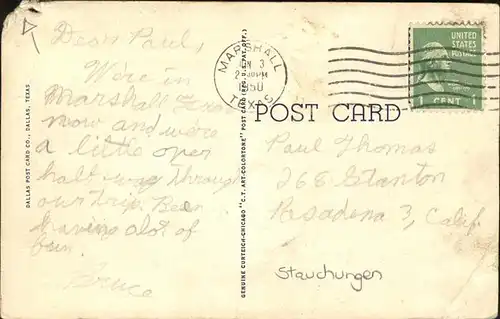 Dear Paul,
We're in
Marshall Texas
now and we're
a little over
half way through
our trip. Been
having a lot of
fun
Bruce
DALLAS POST CARD CO., DALLAS, TEXAS
GENUINE CURTEICH-CHICAGO "C.T. ART-COLORTONE" POST CARD (REG. U.S. PAT. OFF.)
MARSHALL
3
PM
1950
TEXAS
UNITED
STATES
POSTAGE
1 CENT 1
POST CARD
Paul Thomas
268 Stanton
Pasadena 3, Calif.
Stauchungen